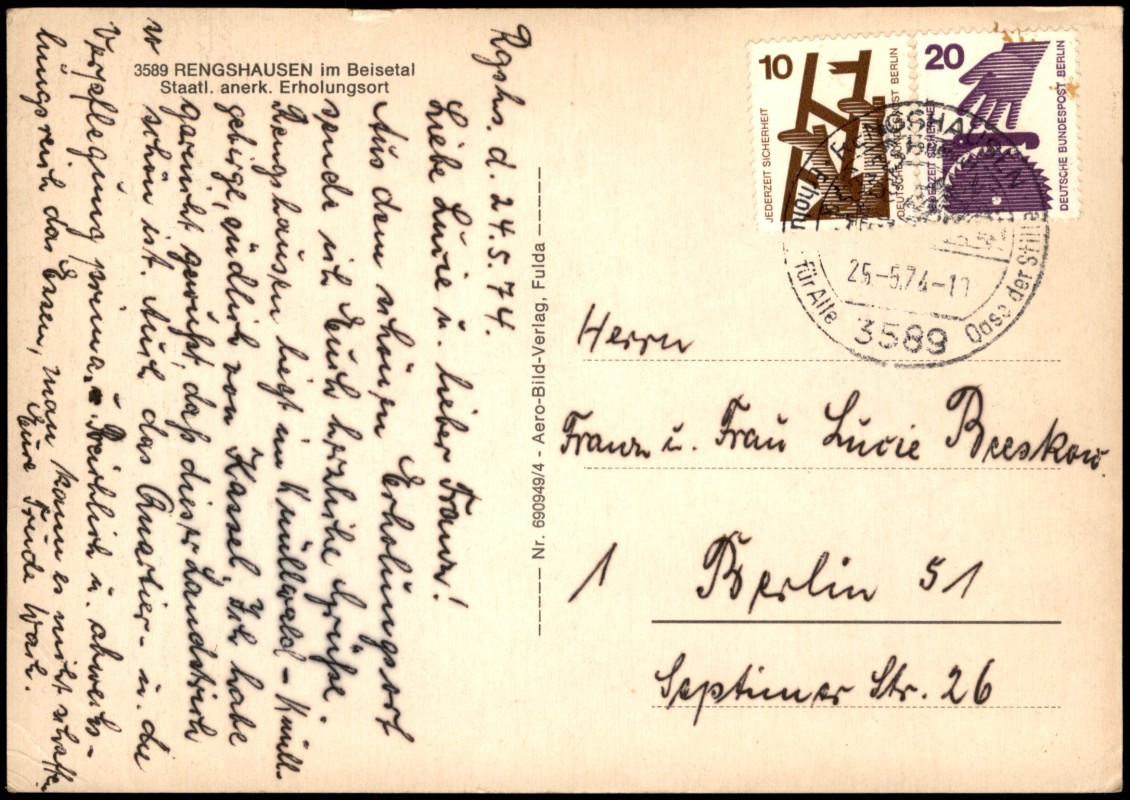 3589 RENGSHAUSEN im Beisetal
Staatl. anerk. Erholungsort
Rgshs. d. 24.5.74.
Liebe Lucie u. lieber Franz!
Aus dem schönen Erholungsort
sende ich Euch herzliche Grüße.
Rengshausen liegt im Knüllwald - Knüll-
gebirge, südlich von Kassel. Ich habe
garnicht gewußt, daß dieser Landstrich
so schön ist. Auch das Quartier- u. die
Verpflegung prima. Reichlich u. abwechs-
lungsreich das Essen, man kann es nicht schaffen.
Eure
Nr. 690949/4 - Aero-Bild-Verlag, Fulda
10
JEDERZEIT SICHERHEIT
DEUTSCHE BUNDESPOST BERLIN
20
JEDERZEIT SICHERHEIT
DEUTSCHE BUNDESPOST BERLIN
RENGSHAUSEN
25.-5.74-
für Alle
3589
Oase der Stille
Herrn
Franz u. Frau Lucie Beeskow
1 Berlin 51
Septimer Str. 26